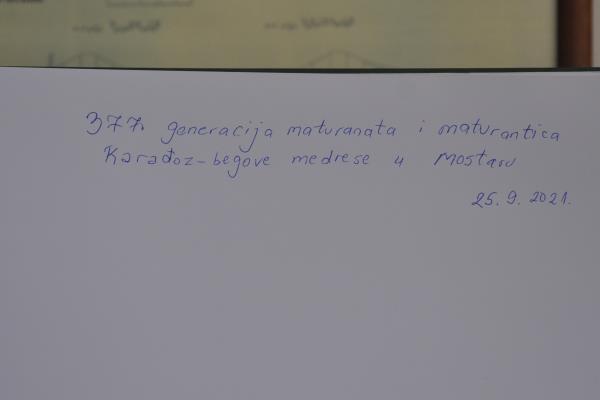 377. generacija maturanata i maturantica
Karađoz-begove medrese u Mostaru
25. 9. 2021.